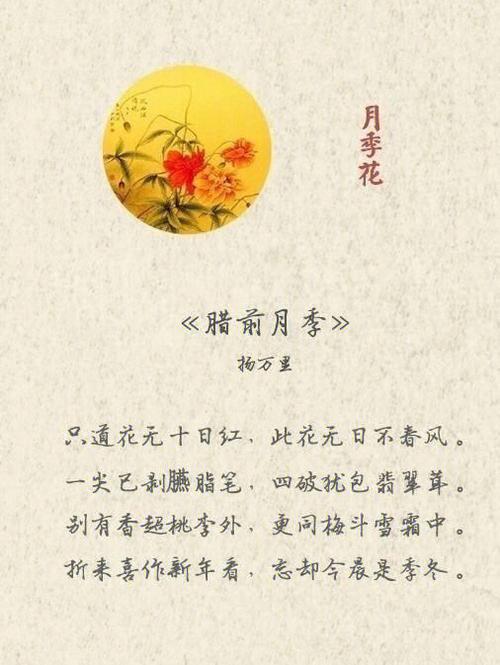 月季花
《腊前月季》
扬万里
只道花无十日红，此花无日不春风。
一尖已剥臙脂笔，四破犹包翡翠茸。
别有香超桃李外，更同梅斗雪霜中。
折来喜作新年看，忘却今晨是季冬。